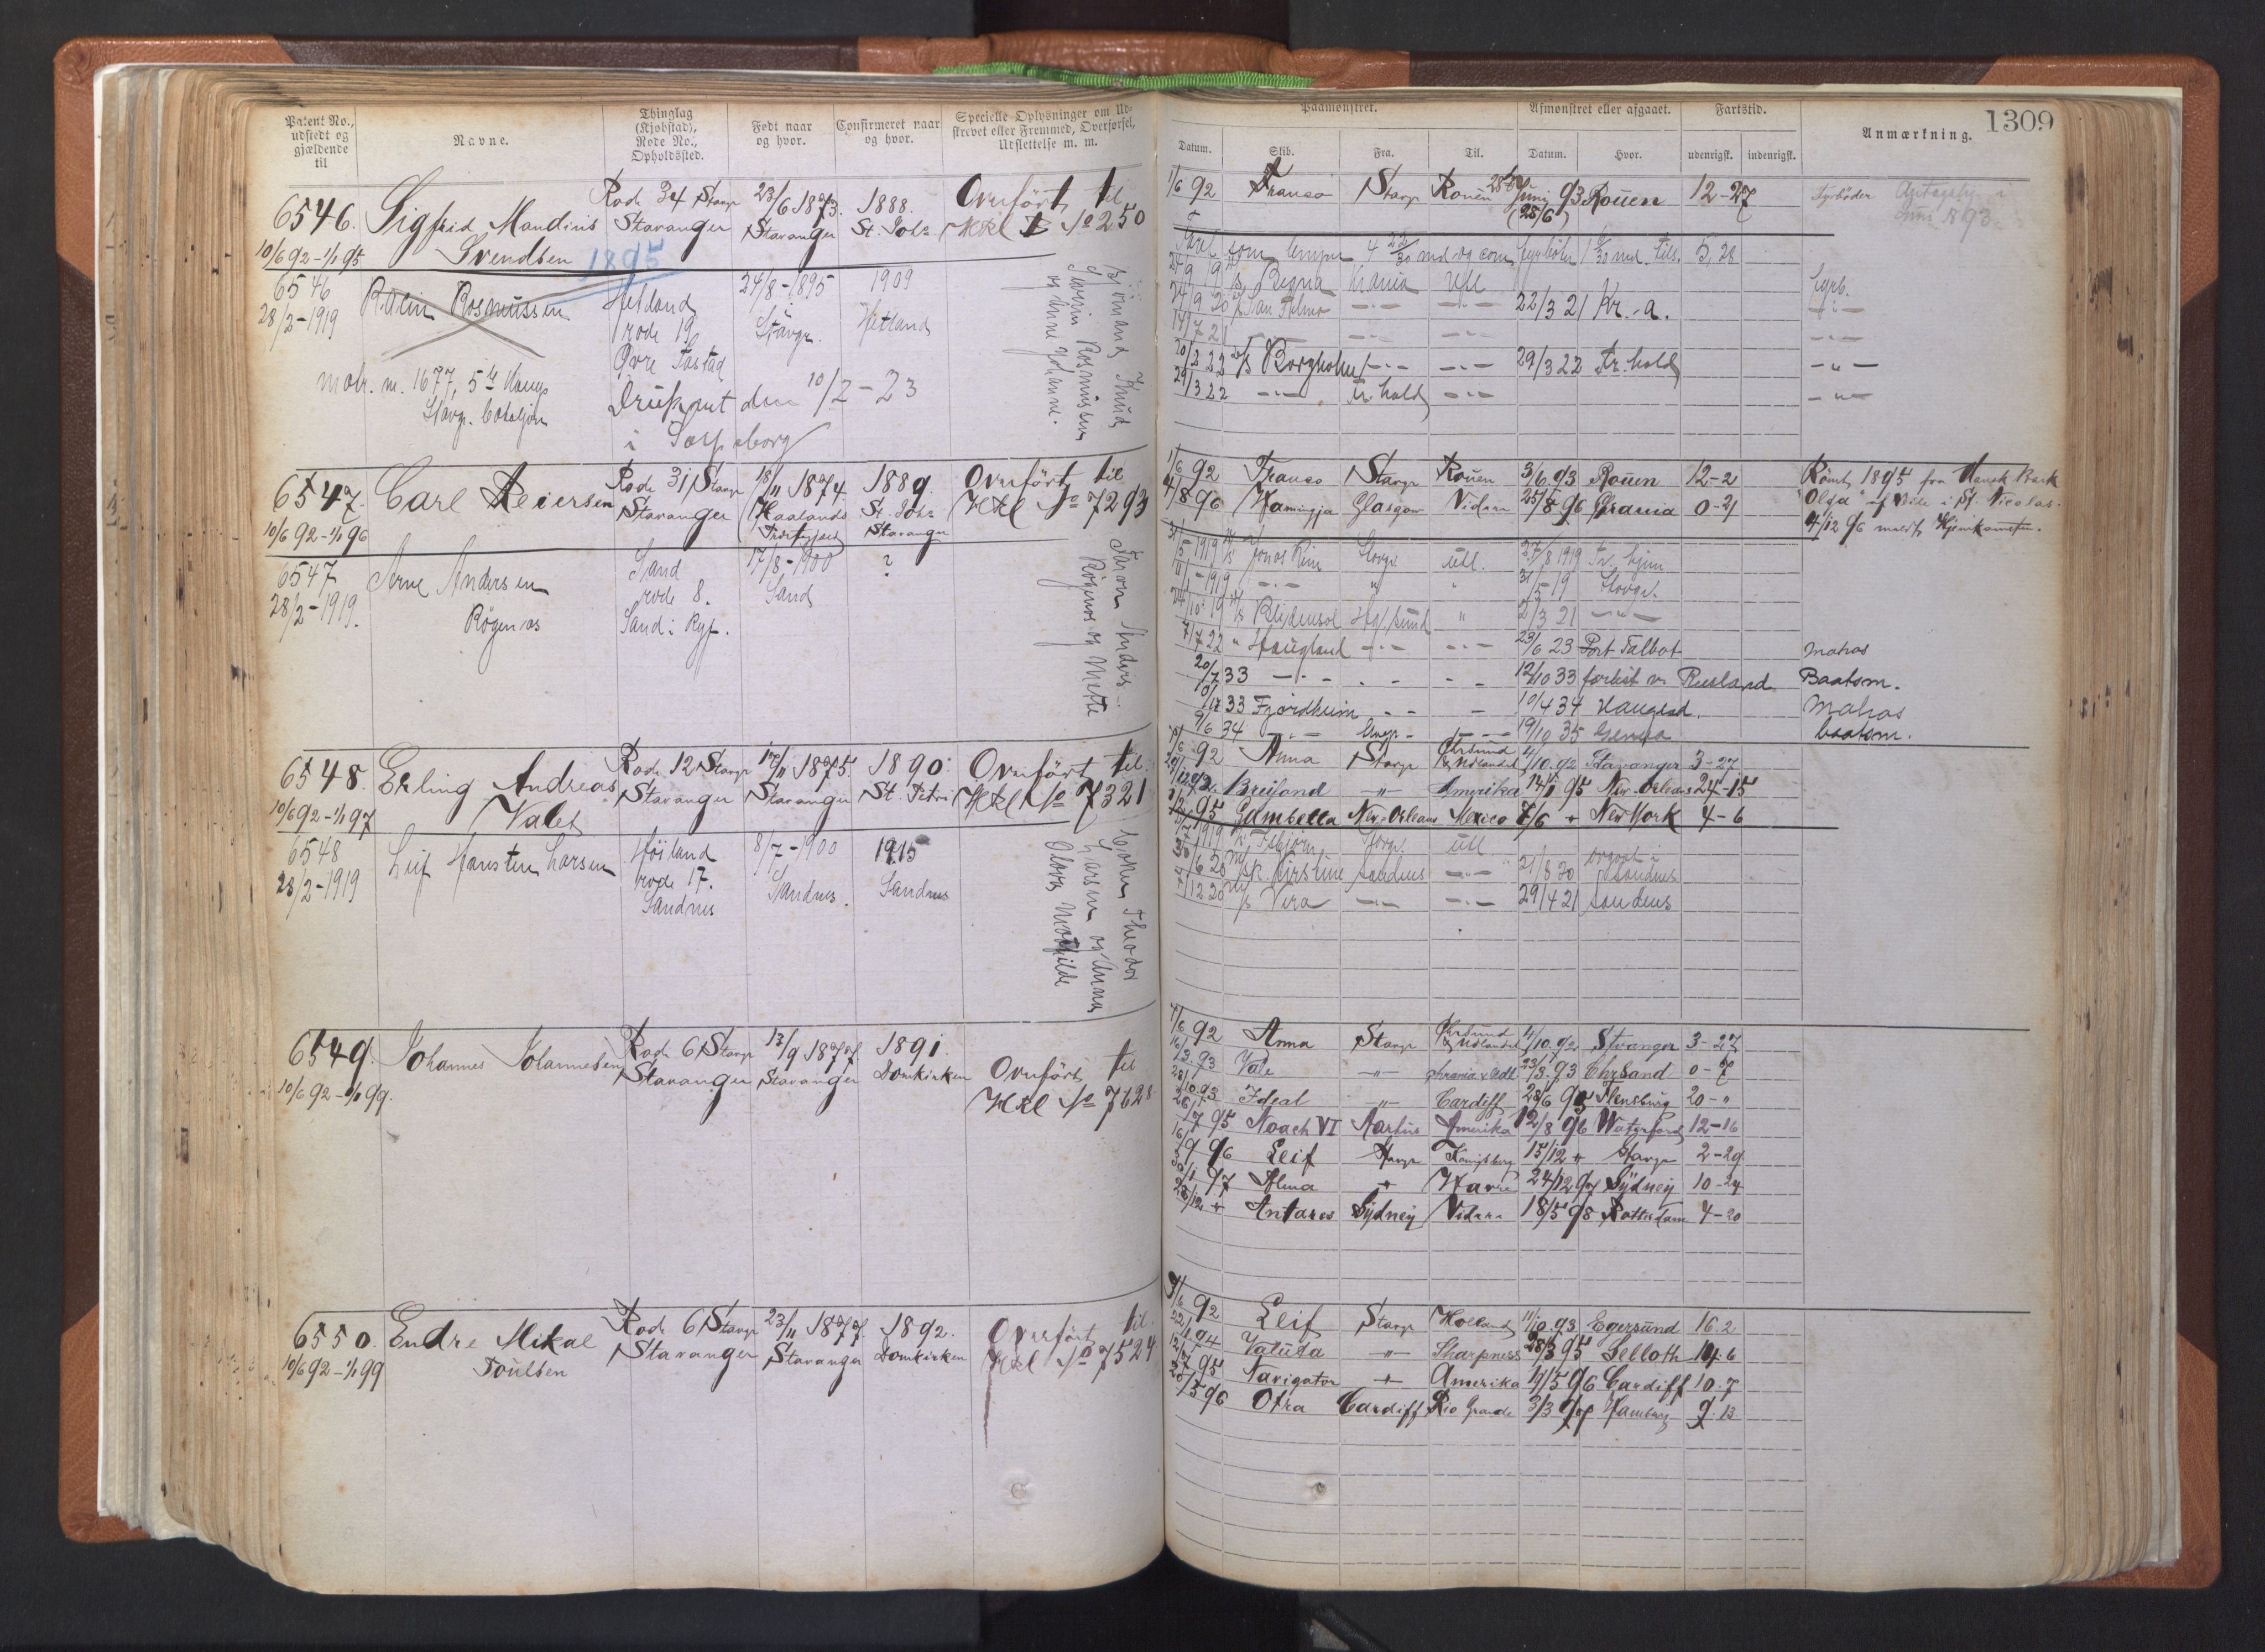 1309
Patent No., udstedt og gjældende til
Navne.
Thinglag (Kjøbstad), Rode No., Opholdssted.
Født naar og hvor.
Confirmeret naar og hvor.
Specielle Oplysninger om Udskrevet eller Fremmed, Overførsel, Udslettelse m. m.
Paamønstret.
Afmønstret eller afgaaet.
Fartstid.
Anmærkning.
Datum. Skib. Fra. Til. Datum. Hvor. udenrigsk. indenrigsk.
6546. Sigfrid Mandius Rode 34 Stavgr 23/6 1873. 1888. Overført til
Svendsen Stavanger Stavanger St. Johs HKl No 250
10/6 92 - 1/1 95 1895
1/6 92 Franco Stavgr Rouen 93 Rouen 12-27 Fyrbøder
(28/6)
5, 28
6546 Rasmussen Hetland 24/8-1895 1909
28/2-1919 rode 19 Stavgr. Hetland
Øvre Tastad
motr. nr. 1677, 5te Komp
Stavgr. bataljon
Druknet den 10/2-23
i Sarpsborg
Knud
Rosmussen
og Anne Johanne.
Regna Krania Utl Fyrb.
22/3 21 Kr.-a.
20/2 22 Borgholm 29/3 22 Tr.hold
29/3 22 Tr.hold
6547. Carl Reiersen Rode 31 Stavgr 18/11 1874. 1889. Overført til
Stavanger Haalands Præstegjæld St. Johs Stavanger HKl No 7293
10/6 92 - 1/1 96
1/6 92 Franco Stavgr Rouen 3/6 93 Rouen 12-2 Rømt 1895 fra Norsk Bark
4/8 96 Hamingja Glasgow Vidare 25/8 96 Chrania 0-21 "Olga" St. Nicolas.
4/12 96
6547 Arne Andersen Sand 17/8-1900 ?
28/2-1919. Røgenæs rode 8. Sand
Sand i Ryf.
Røgenæs og Mette
31/5-1919 Jonas Rein Stavgr. Utl. 27/8 1919 Tr.hjem
31/5-19 Stavgr.
24/10-19 Hgsund " 2/3 21
7/7 22 " Haugland 23/6 23 Port Talbot matros
20/7 33 12/10 33 forlist v. Rusland Baatsm.
33 Fjordheim 10/4 34 Haugesd. Matros
9/6 34 19/10 35 Genua baatsm.
6548. Erling Andreas Rode 12 Stavgr 14/11 1875. 1890. Overført til
Valet Stavanger Stavanger St. Petri HKl No 7321
10/6 92 - 1/1 97
92 Anna Stavgr Ørsund & Udlandet 4/10.92 Stavanger 3-27
Breifond " Amerika 14/1 95 New-Orleans 24-15
95 Gambella New-Orleans Mexico 7/6 " New York 4-6
6548 Leif Karsten Larsen Høiland 8/7-1900 1915
28/2-1919 rode 17. Sandnes. Sandnes
Sandnes
Theodor
Larsen og Anna
Olava Mathilde
1919 Isbjørn Stavgr. Utl
6 20 Kirstine Sandnes 21/8 20 Sandnes
7/12 20 Vera 29/4 21 Sandnes
6549. Johannes Johannesen Rode 6 Stavgr 13/9 1877. 1891. Overført til
Stavanger Stavanger Domkirken HKl No 7628
10/6 92 - 1/1 99.
7/6 92 Anna Stavgr Ørsund & Udlandet 4/10.92 Stvanger 3-27
93 Vale " Chrania & Udl 23/8.93 Chrsand 0-7
93 Ideal " Cardiff 28/6 95 Flensburg 20-"
7 95 Noach VI Aarhus Amerika 12/8 96 Waterford 12-16
16/9 96 Leif Stavgr Kønigsberg 15/12 " Stavgr 2-29
30/1 97 Alma " Havre 24/12 97 Sydney 10-24
28/12 " Antares Sydney Vidare 18/5 98 Rotterdam 4-20
6550. Endre Mikal Rode 6 Stavgr 23/11 1877. 1892. Overført til
Poulsen Stavanger Stavanger Domkirken HKl No 7524
10/6 92 - 1/1 99
9/6 92 Leif Stavgr Holland 11/10.93 Egersund 16.2
22/1 94 Valuta " Sharpness 28/3 95 Gelloth 14.6
95 Navigator " Amerika 19/5 96 Cardiff 10.7
20/5 96 Otra Cardiff Rio Grande 3/3 97 Hamburg 9.13